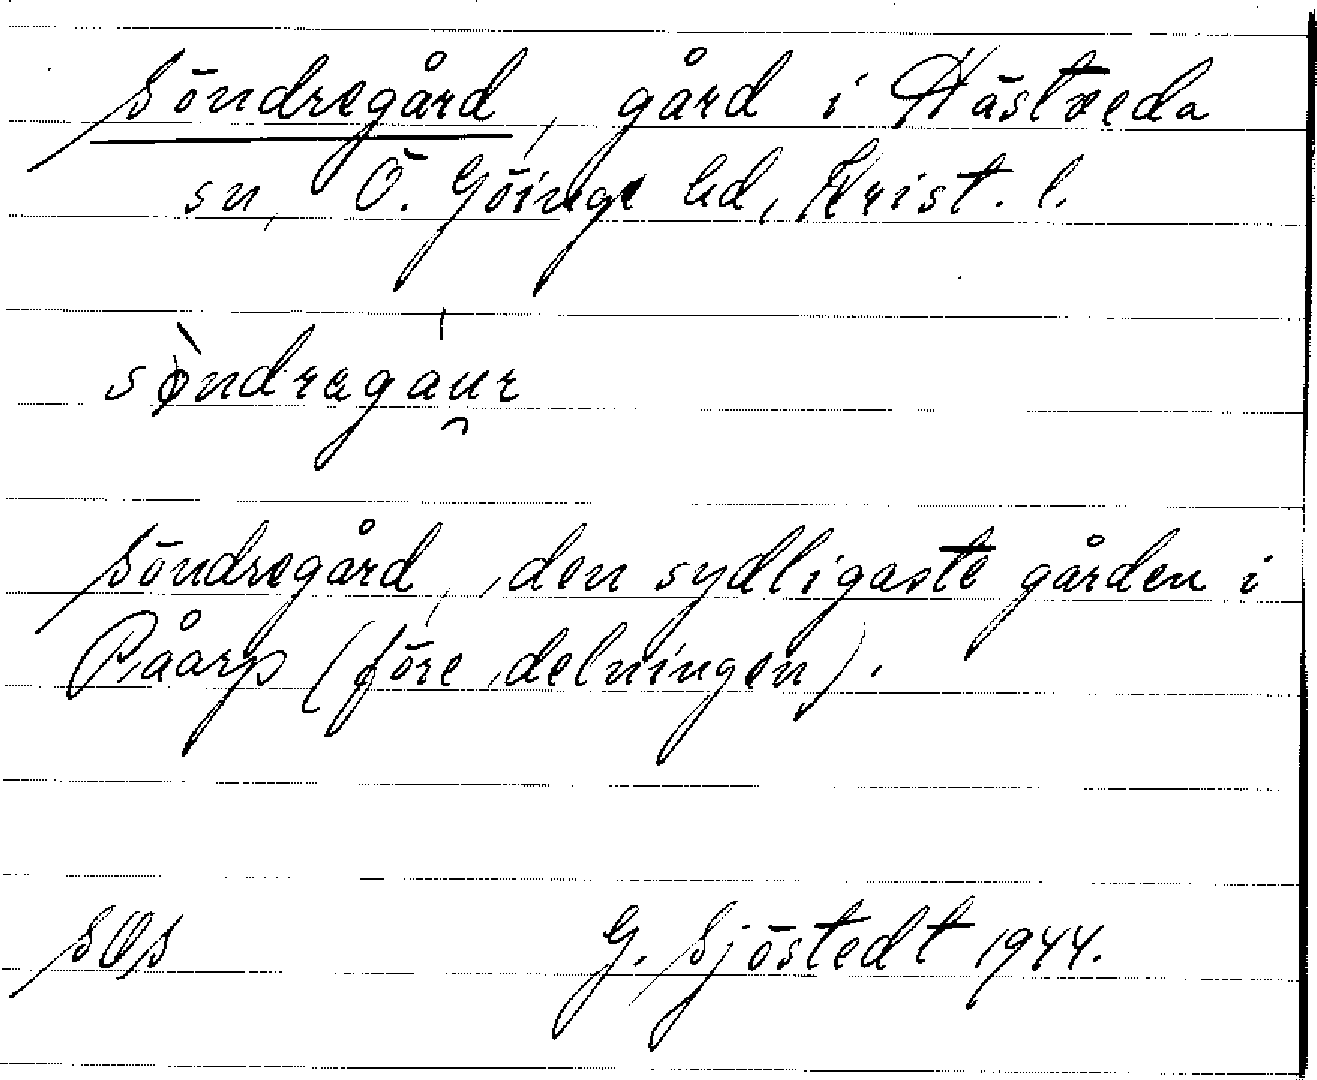 Söndregård, gård i Hästveda
sn, Ö. Göinge hd, Krist. l.
sø̀ndrægáu̯r
Söndregård, den sydligaste gården i
Påarp (före delningen).
G. Sjöstedt 1944.